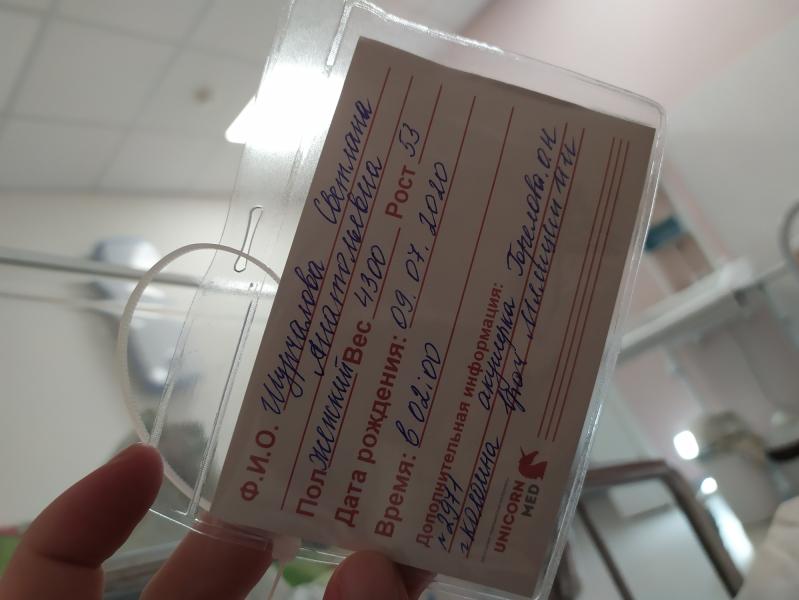 Ф.И.О. Шурчалова Светлана
Анатольевна
Пол женский Вес 4300 Рост 53
Дата рождения: 09.07.2020
Время: в 02:00
Дополнительная информация:
№2971 акушерка Горелова О.Н.
UNICORN
MED